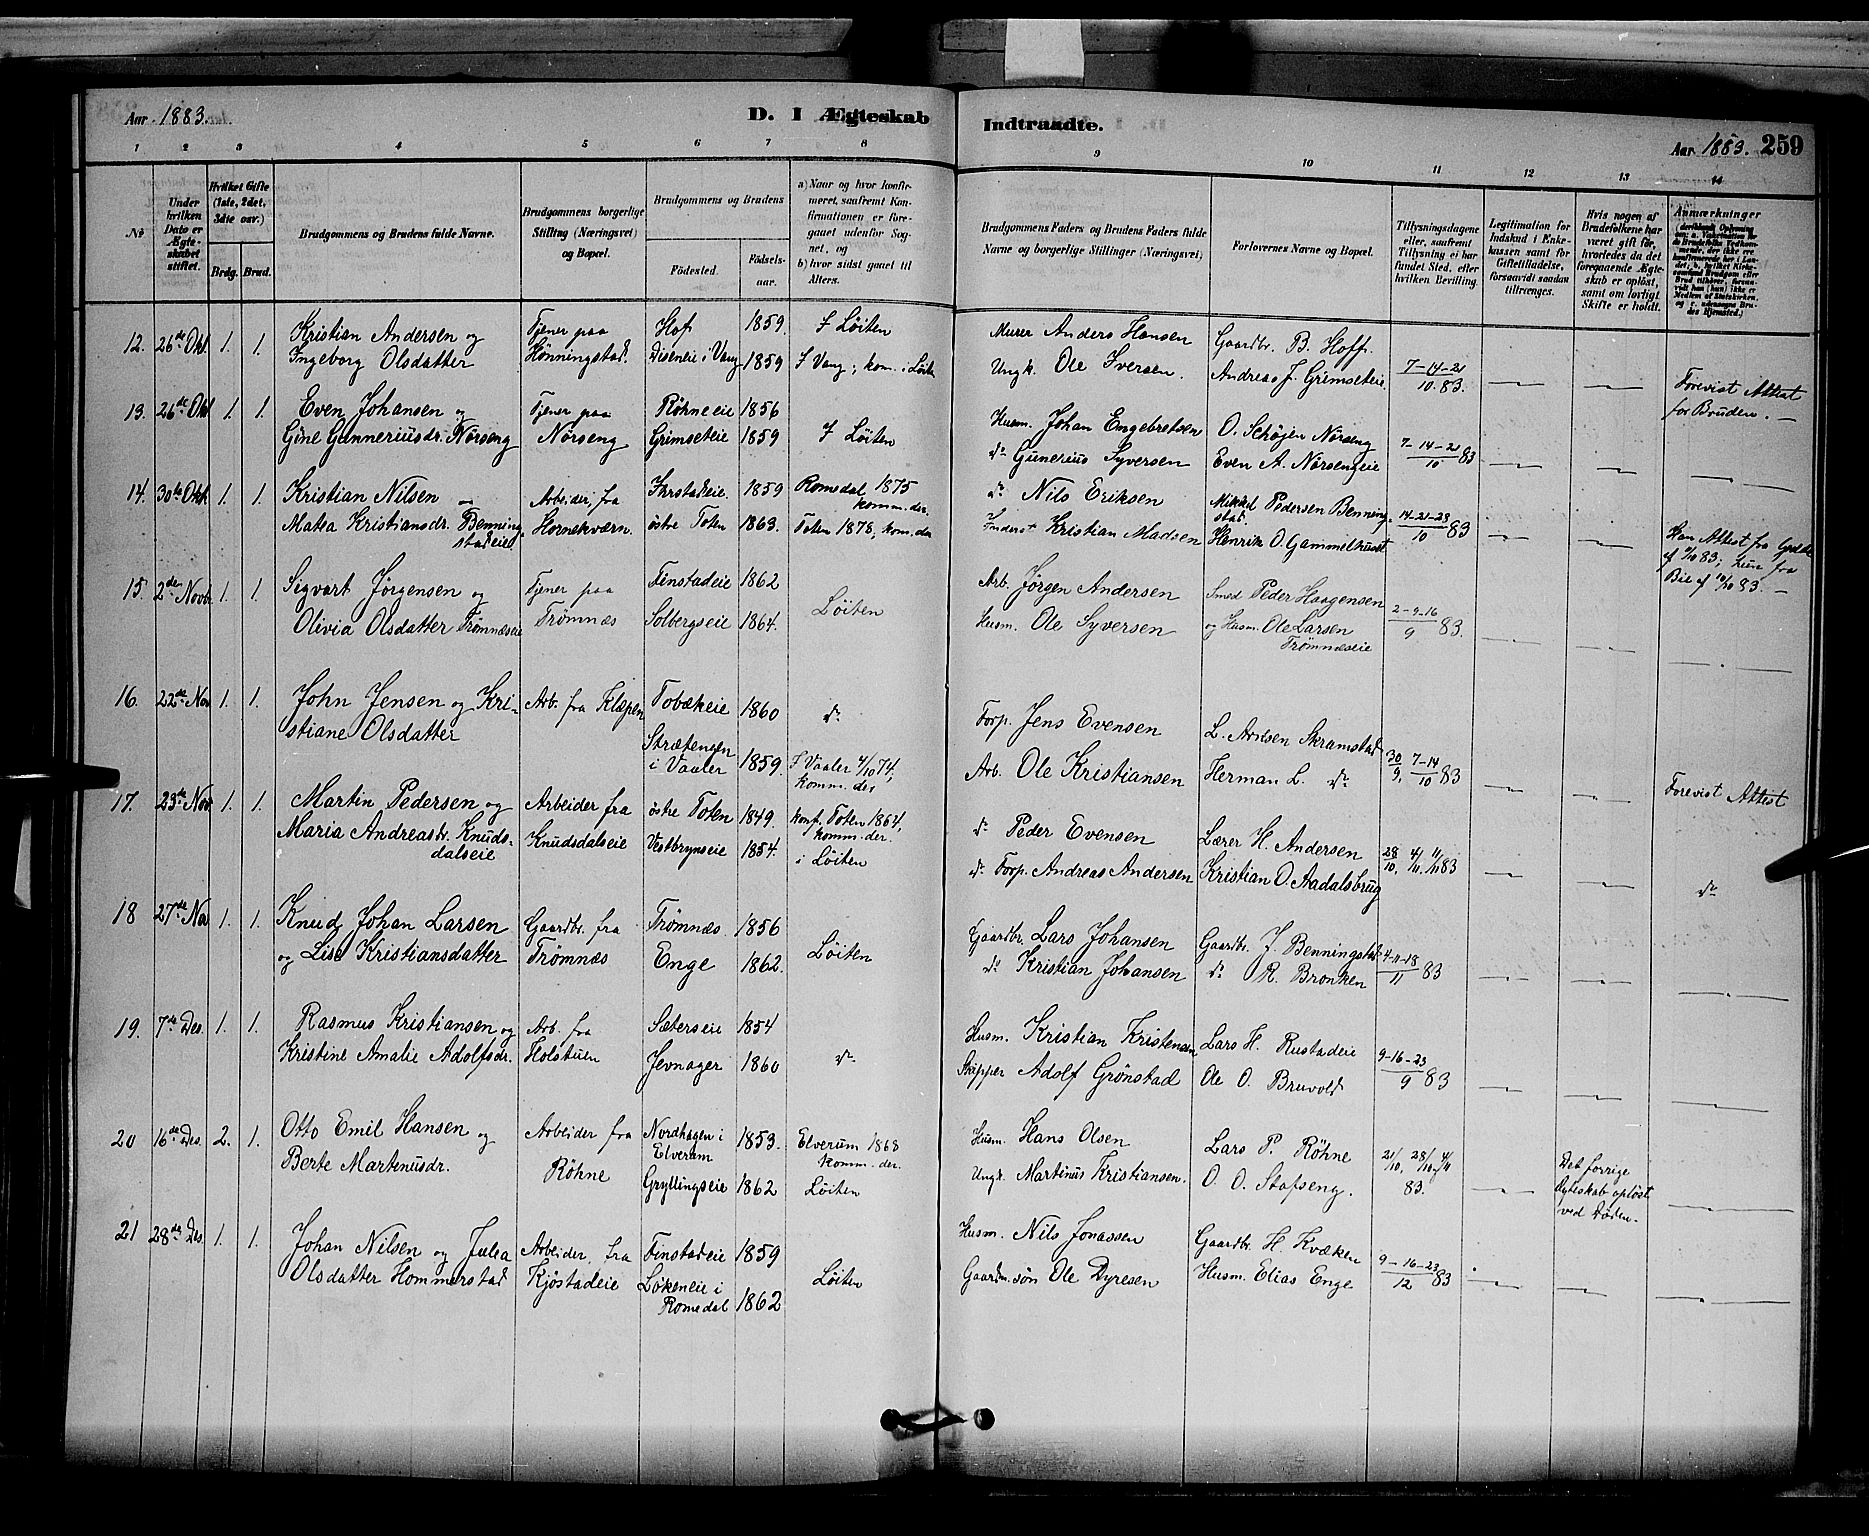 Aar 1883. D. I Ægteskab Indtraadte. Aar 1883. 259
1 2 3 4 5 6 7 8 9 10 11 12 13 14
No
Under hvilken Dato er Ægteskabet stiftet.
Hvilket Gifte (1ste, 2det, 3dte osv.)
Brdg. Brud.
Brudgommens og Brudens fulde Navne.
Brudgommens borgerlige Stilling (Næringsvei) og Bopæl.
Brudgommens og Brudens
Födested. Födselsaar.
a) Naar og hvor konfirmeret, saafremt Konfirmationen er foregaaet udenfor Sognet, og
b) hvor sidst gaaet til Alters.
Brudgommens Faders og Brudens Faders fulde Navne og borgerlige Stillinger (Næringsvei.)
Forlovernes Navne og Bopæl.
Tillysningsdagene eller, saafremt Tillysning ei har fundet Sted, efter hvilken Bevilling.
Legitimation for Indskud i Enkekassen samt for Giftetilladelse, forsaavidt saadan tiltrænges.
Hvis nogen af Brudefolkene har været gift før, hvorledes da det foregaaende Ægteskab er opløst, samt om lovligt Skifte er holdt.
Anmærkninger
12. 26de Okt. 1. 1. Kristian Andersen og Tjener paa Hof 1859. I Løiten Murer Anders Hansen Gaardbr. B. Hoff.
Ingeborg Olsdatter Hönningstad. Diseneie i Vang 1859 I Vang; kom. i Løiten Ungk. Ole Iversen. Andreas J. Grimseteie 7-14-21/10. 83. Forevist Attest for Bruden. —
13. 26de Okt 1. 1. Even Johansen og Tjener paa Røhneeie 1856 I Løiten Husm. Johan Engebretsen O. Schøjen Nörseng
Gine Gunneriusdr. Nörseng Nörseng Grimseteie 1859 do Gunerius Syversen Even A. Nörsengeie 7-14-21/10 83
14. 30te Okt. 1. 1. Kristian Nilsen og Arbeider, fra Ihrstadeie. 1859 Romedal 1875 komm. der. do Nils Eriksen Mikkel Pedersen Benningstad.
Matea Kristiansdr. Benningstadeie Hornekværn. östre Toten 1863. Toten 1878, kom. der Inderst Kristian Madsen Henrik O. Gammelhuset 14-21-28/10 83 Han Attest fra
af 83; hun fra
Bie af 10/10 83. —
15. 2den Novbr 1. 1. Sigvart Jørgensen og Tjener paa Finstadeie 1862 Løiten Arb. Jørgen Andersen Smed Peder Haagensen
Olivia Olsdatter Trömnæseie Trömnæs Solbergseie 1864. Husm. Ole Syversen og Husm. Ole Larsen Trömnæseie 2-9-16/9 83.
16. 22de Nov 1. 1. John Jensen og Kri- Arb. fra Klæpen Tobækeie 1860 do Forp. Jens Evensen L. Arnesen Skramstad
stiane Olsdatter Strætengen i Vaaler 1859. I Vaaler 4/10 74, komm. der Arb. Ole Kristiansen Herman L. do 30/9, 7-14/10 83 Forevist Attest
17. 23de Nov 1. 1. Martin Pedersen og Arbeider fra östre Toten 1849. konf. Toten 1864, komm. der. do Peder Evensen Lærer H. Andersen
Maria Andreasdr. Knudsdalseie Knudsdalseie Vestbrynseie 1854. i Løiten do Forp. Andreas Andersen Kristian O. Aadalsbrug 28/10, 4/11, 11/11 83 do
18 27de Nov 1. 1. Knud Johan Larsen Gaardbr. fra Trömnæs 1856 Løiten Gaardbr. Lars Johansen Gaardbr. J. Benningstad
og Lise Kristiansdatter Trömnæs Enge 1862. do Kristian Johansen do R. Bronken 4-11-18/11 83
19. 7de Des. 1. 1. Rasmus Kristiansen og Arb. fra Sæterseie 1854 do Husm. Kristian Kristensen Lars H. Rustadeie
Kristine Amalie Adolfsdr. Holstuen Jevnager 1860 Skipper Adolf Grönstad Ole O. Bruvold 9-16-23/9 83
20 16de Des. 2. 1. Otto Emil Hansen og Arbeider fra Nordhagen i Elverum 1853. Elverum 1868 komm. der. Husm. Hans Olsen Lars P. Röhne
Berte Martinusdr. Röhne Gryllingseie 1862 Løiten Ungk. Martinus Kristiansen. O. O. Stofseng. 21/10, 28/10, 4/11 83. Det forrige Ægteskab opløst ved Døden.
21 28de Des. 1. 1. Johan Nilsen og Julia Arbeider, fra Finstadeie 1859 Løiten Husm. Nils Jonassen Gaardbr. H. Kvæken
Olsdatter Hommerstad Kjöstadeie Lökeneie i Romedal 1862 Gaardm. sön Ole Dyresen Husm. Elias Enge 9-16-23/12 83